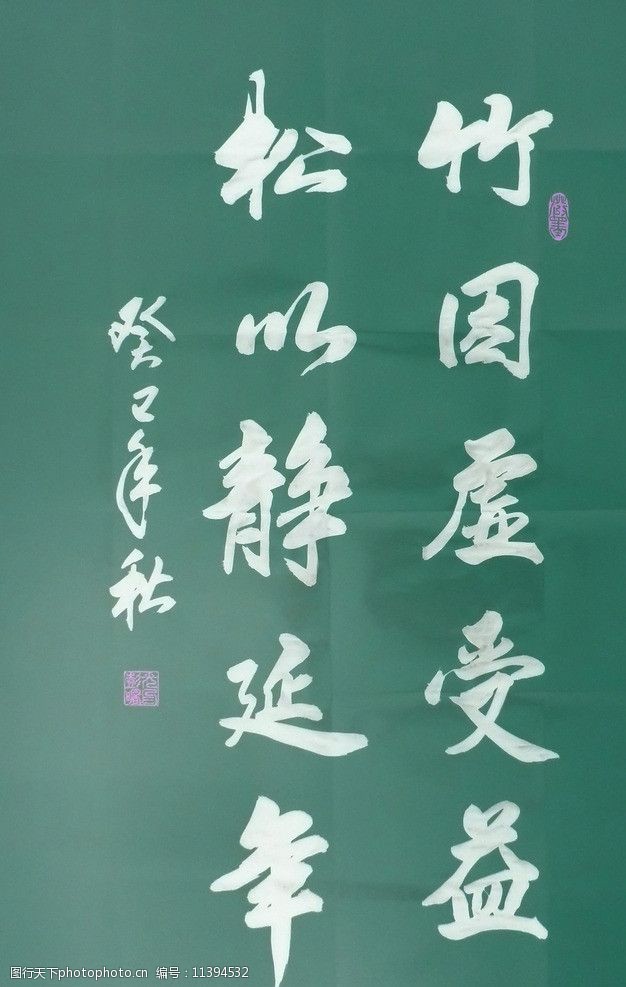 竹因虚受益
松以静延年
癸巳年秋
图行天下photophoto.cn 编号：11394532